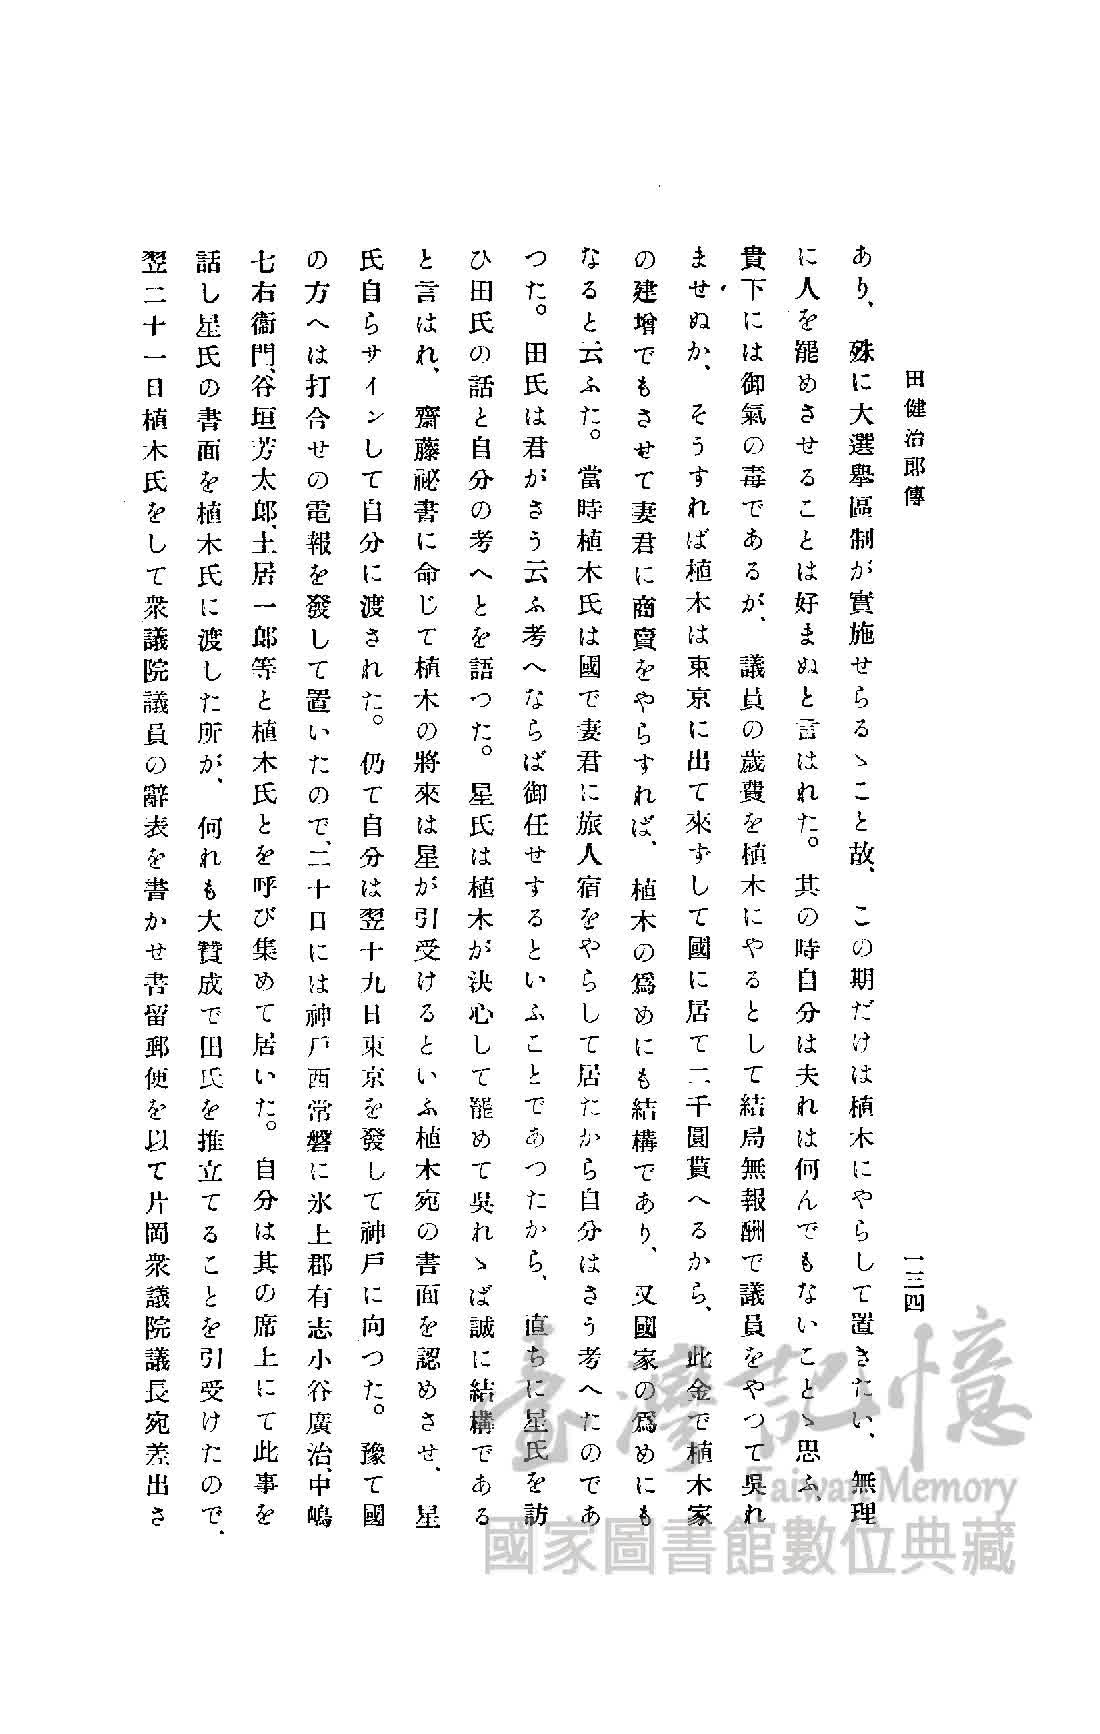 田健治郎傳
一三四
あり、殊に大選擧區制が實施せらるゝこと故、この期だけは植木にやらして置きたい、無理
に人を罷めさせることは好まぬと言はれた。其の時自分は夫れは何んでもないことゝ思ふ、
貴下には御氣の毒であるが、議員の歲費を植木にやるとして結局無報酬で議員をやつて吳れ
ませぬか、そうすれば植木は東京に出て來ずして國に居て二千圓貰へるから、此金で植木家
の建增でもさせて妻君に商賣をやらすれば、植木の爲めにも結構であり、又國家の爲めにも
なると云ふた。當時植木氏は國で妻君に旅人宿をやらして居たから自分はさう考へたのであ
つた。田氏は君がさう云ふ考へならば御任せするといふことであつたから、直ちに星氏を訪
ひ田氏の話と自分の考へとを語つた。星氏は植木が決心して罷めて吳れゝば誠に結構である
と言はれ、齋藤祕書に命じて植木の將來は星が引受けるといふ植木宛の書面を認めさせ、星
氏自らサインして自分に渡された。仍て自分は翌十九日東京を發して神戶に向つた。豫て國
の方へは打合せの電報を發して置いたので、二十日には神戶西常磐に氷上郡有志小谷廣治、中嶋
七右衞門、谷垣芳太郞、土居一郞等と植木氏とを呼び集めて居いた。自分は其の席上にて此事を
話し星氏の書面を植木氏に渡した所が、何れも大贊成で田氏を推立てることを引受けたので、
翌二十一日植木氏をして衆議院議員の辭表を書かせ書留郵便を以て片岡衆議院議長宛差出さ
臺灣記憶
Taiwan Memory
國家圖書館數位典藏